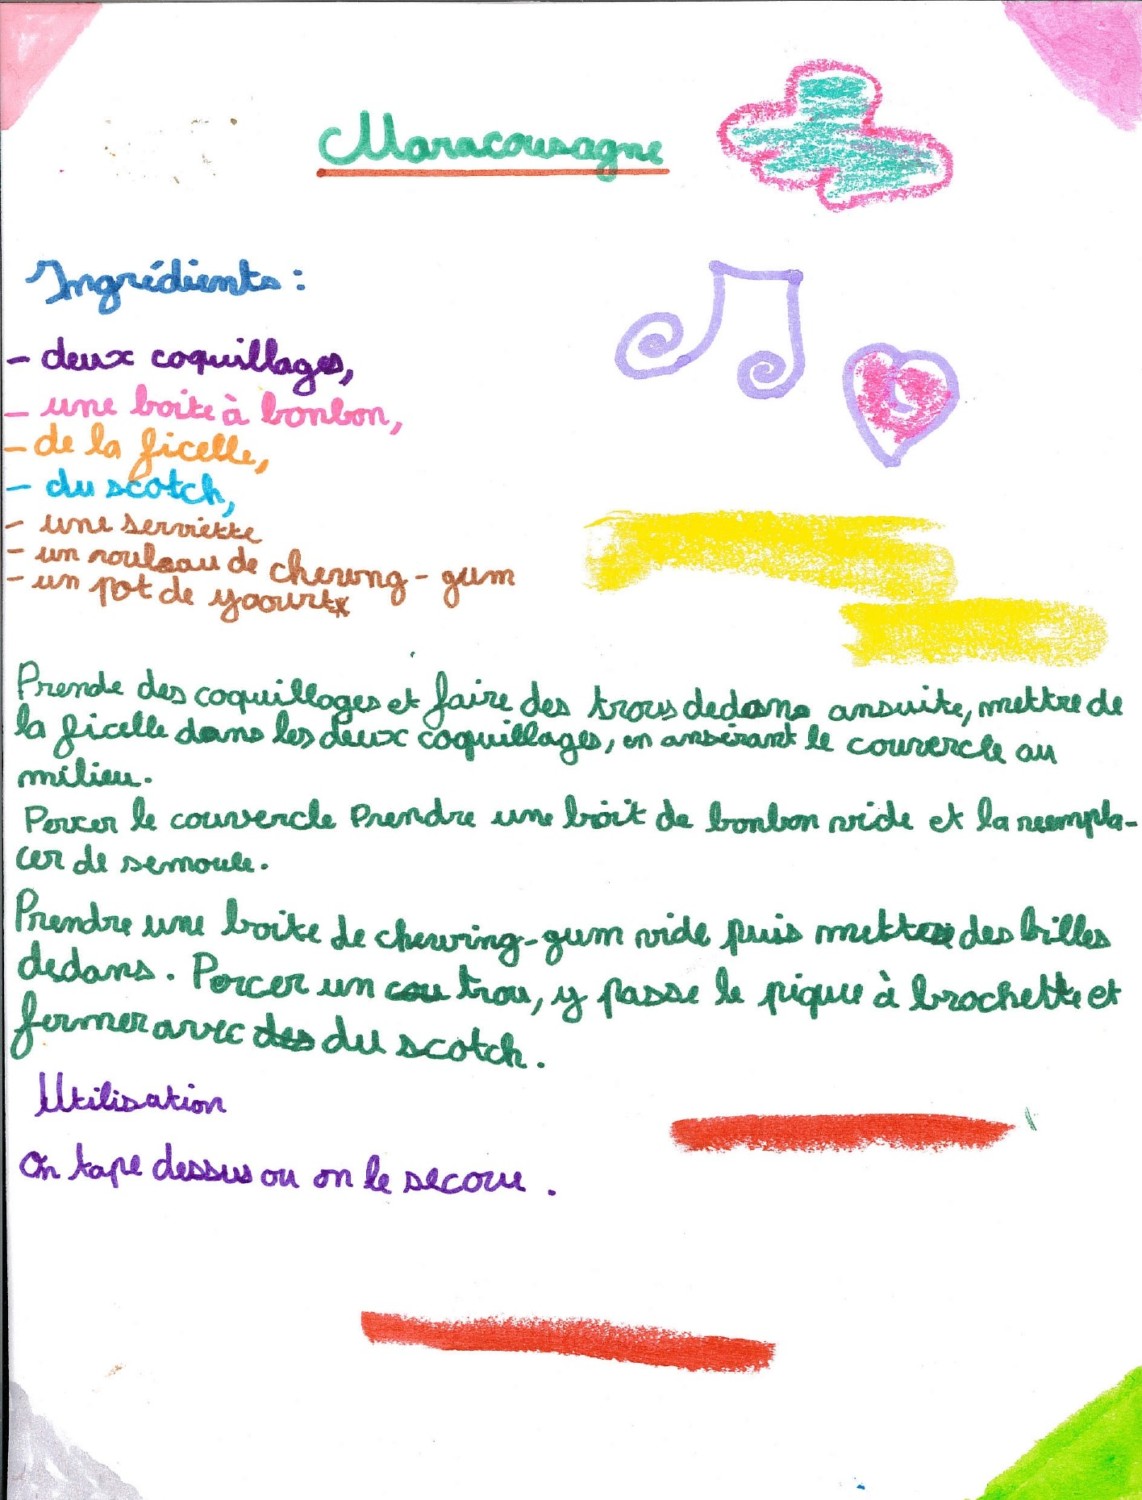 Maracousagne
Ingrédients :
- deux coquillages,
- une boite à bonbon,
- de la ficelle,
- du scotch,
- une serviette
- un rouleau de chewng-gum
- un pot de yaourt
Prende des coquillages et faire des trous dedans ansuite, mettre de
la ficelle dans les deux coquillages, en ansérant le couvercle au
milieu.
Percer le couvercle Prendre une boit de bonbon vide et la reempla-
cer de semoule.
Prendre une boite de chewing-gum vide puis mettre des billes
dedans. Percer un cou trou, y passe le pique à brochette et
fermer avec des du scotch.
Utilisation
On tape dessus ou on le secoue.